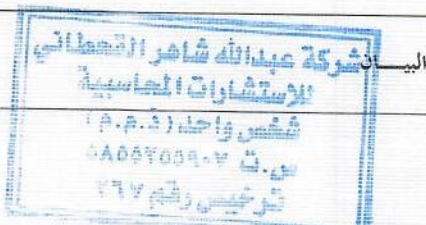 البيـــان
شركة عبدالله شاهر القحطاني
للإستشارات المحاسبية
شخص واحد (ذ.م.م)
س.ت
ترخيص رقم ٢٦٧